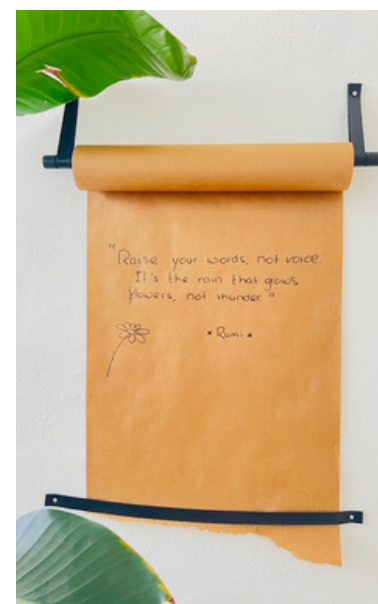 "Raise your words, not voice.
It's the rain that grows
flowers, not thunder."
* Rumi *